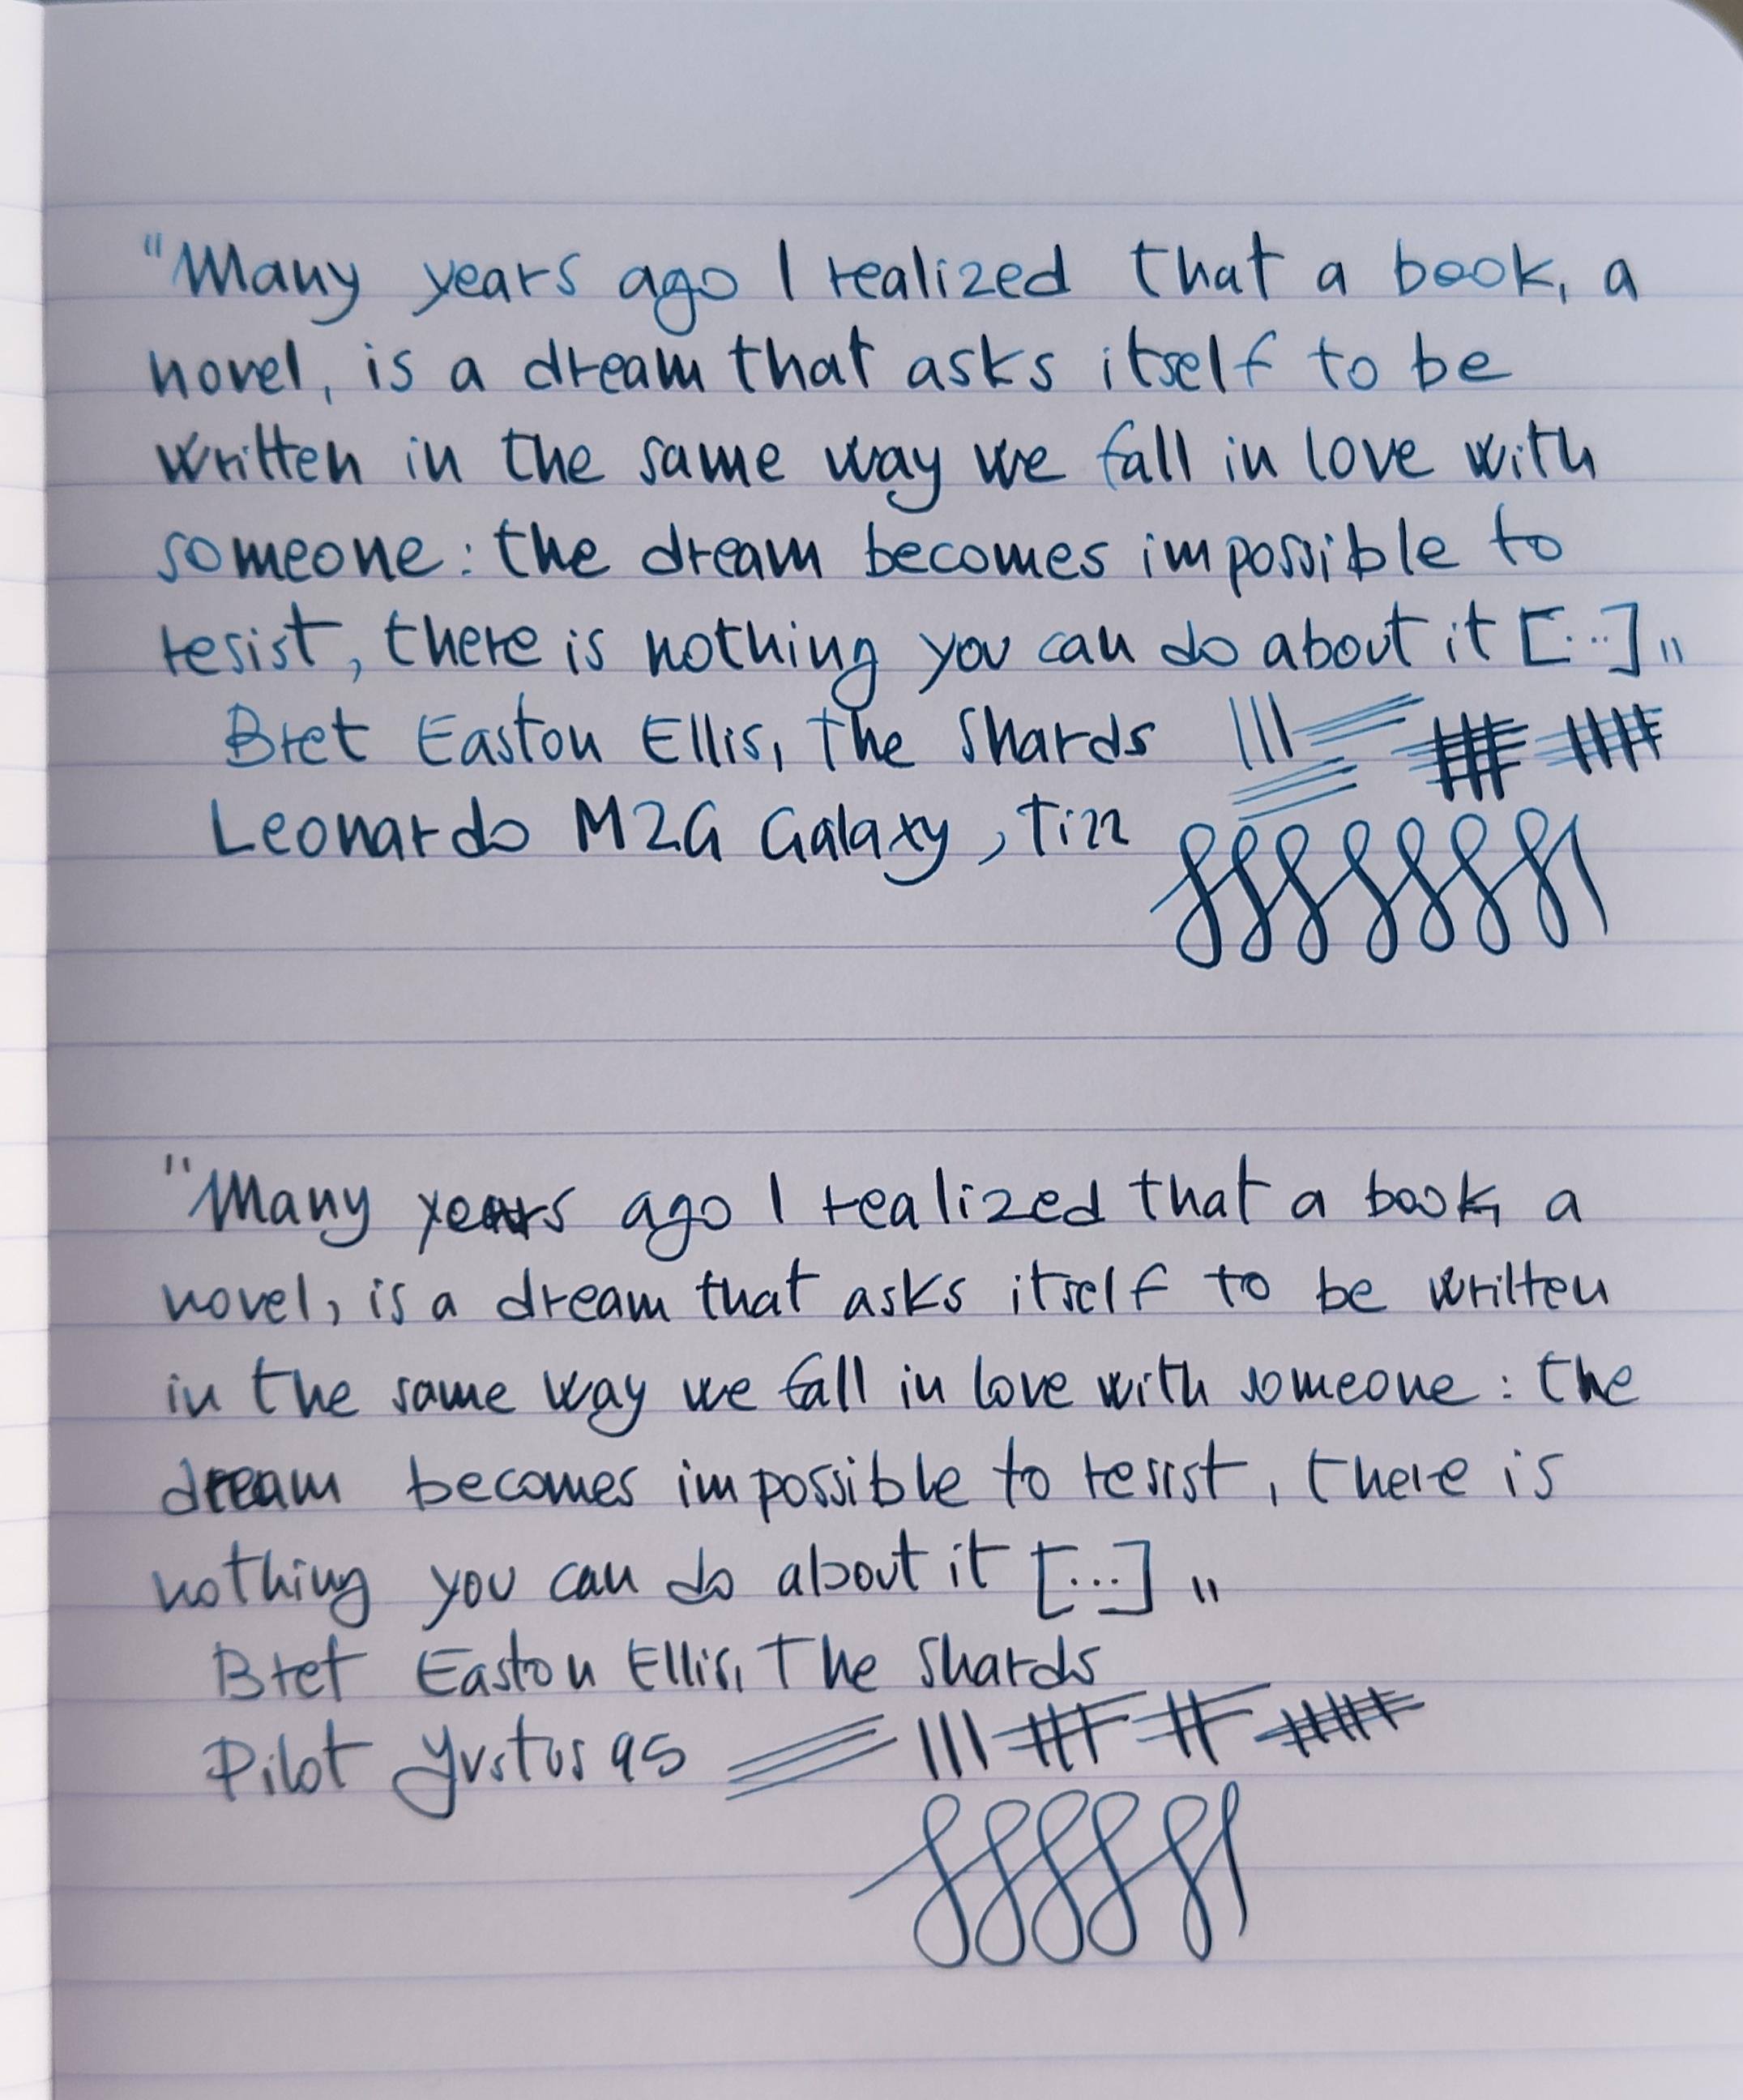 "Many years ago I realized that a book, a
novel, is a dream that asks itself to be
written in the same way we fall in love with
someone: the dream becomes impossible to
resist, there is nothing you can do about it [...]"
Bret Easton Ellis, The Shards
Leonardo MZG Galaxy,
"Many years ago I realized that a book, a
novel, is a dream that asks itself to be written
in the same way we fall in love with someone: the
dream becomes impossible to resist, there is
nothing you can do about it [...]"
Bret Easton Ellis, The Shards
Pilot Justus 95